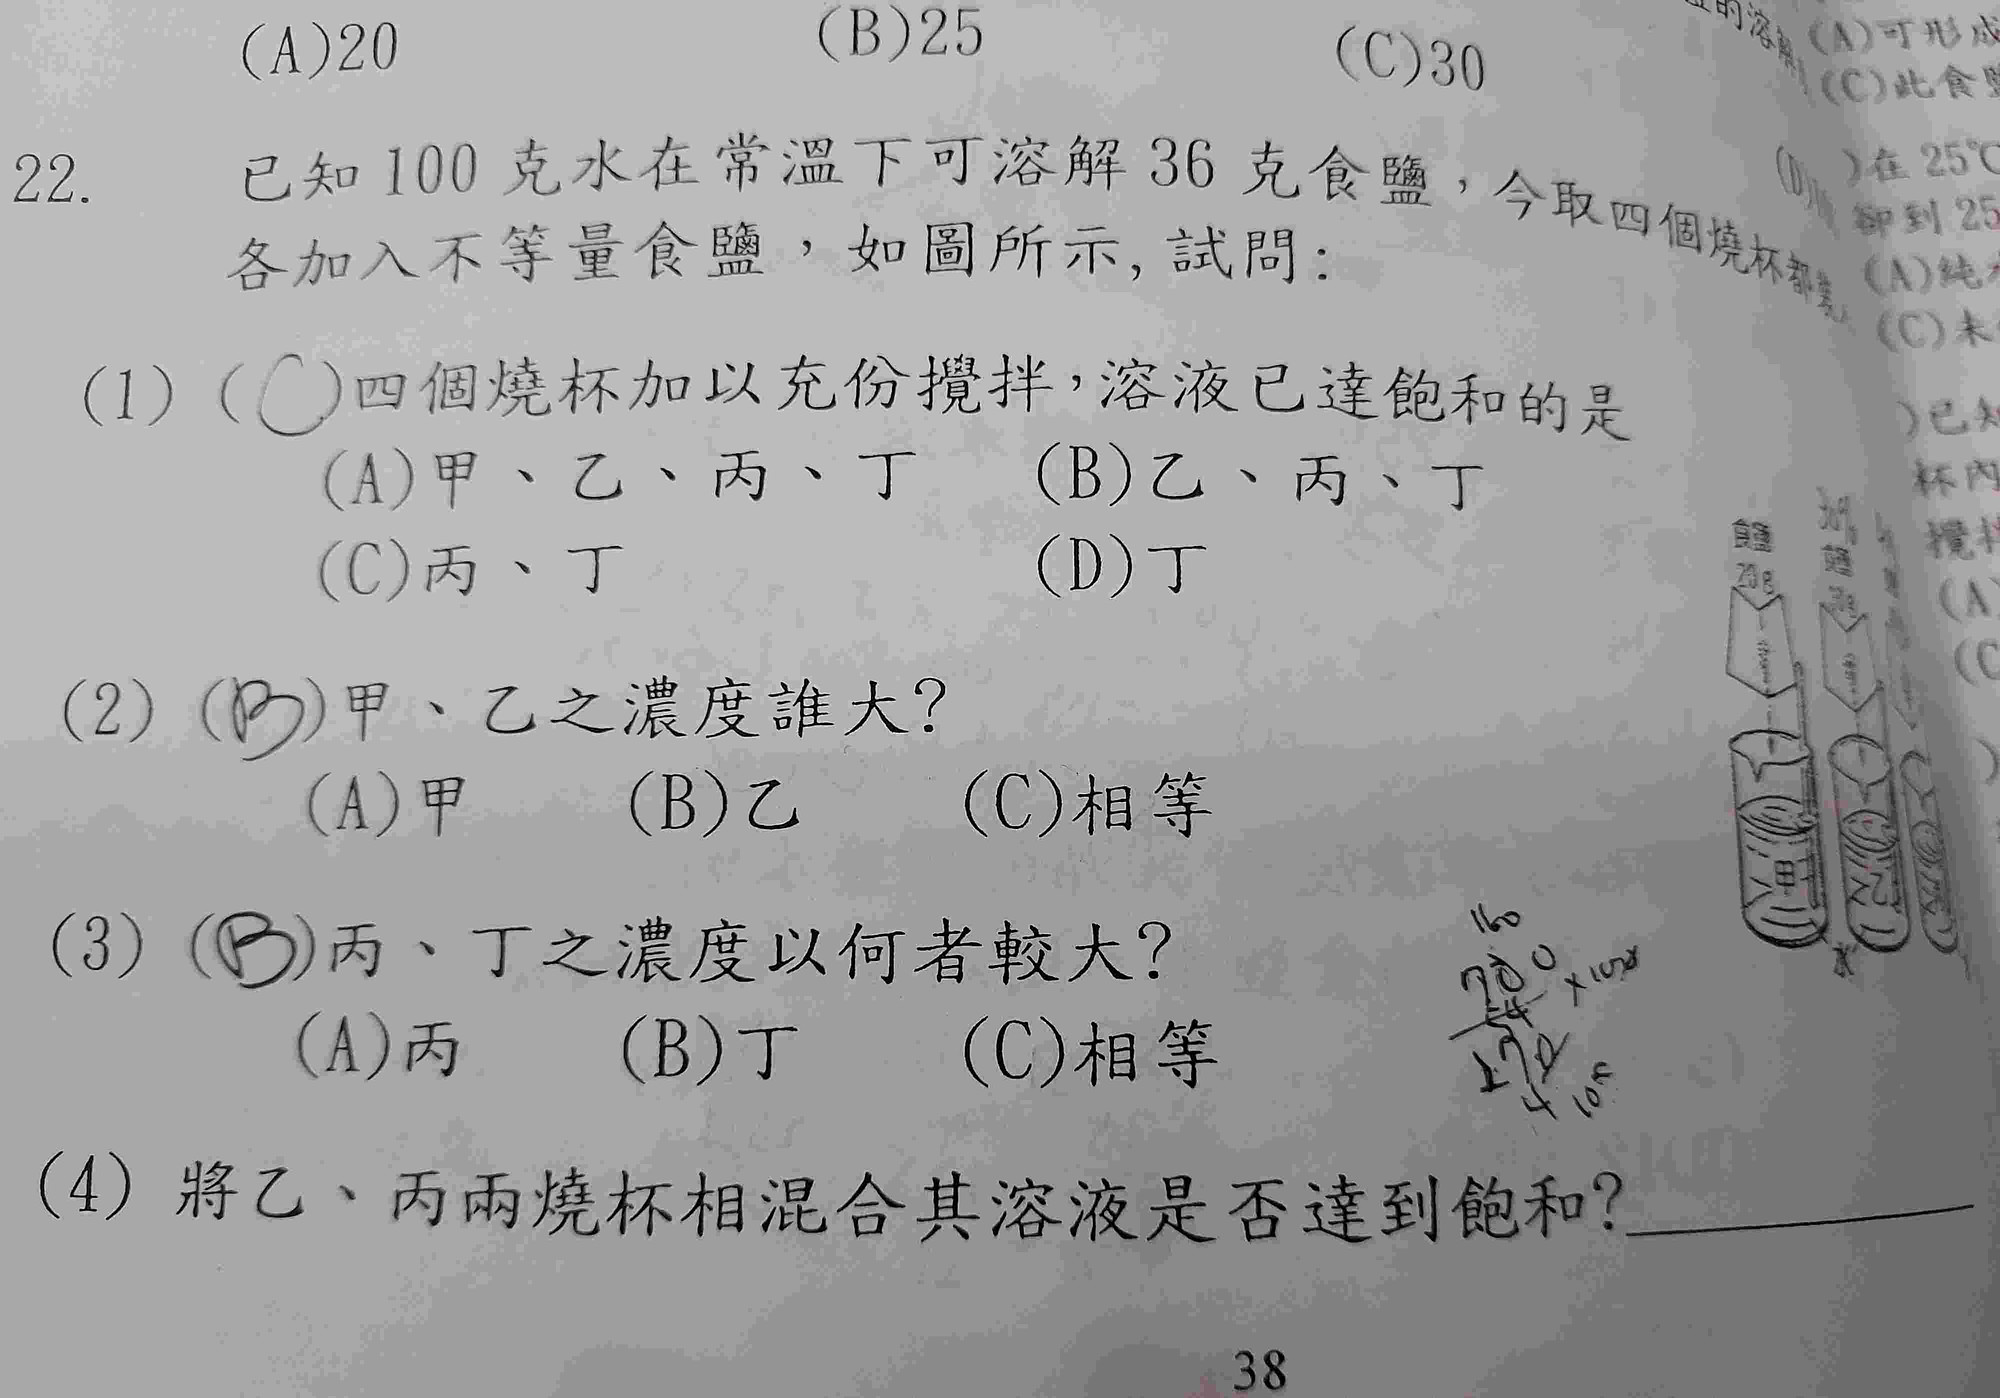 (A)20 (B)25 (C)30
22. 已知100克水在常溫下可溶解36克食鹽，今取四個燒杯都
各加入不等量食鹽，如圖所示,試問:
(1) (C)四個燒杯加以充份攪拌,溶液已達飽和的是
(A)甲、乙、丙、丁 (B)乙、丙、丁
(C)丙、丁 (D)丁
(2) (B)甲、乙之濃度誰大?
(A)甲 (B)乙 (C)相等
(3) (B)丙、丁之濃度以何者較大?
(A)丙 (B)丁 (C)相等
(4) 將乙、丙兩燒杯相混合其溶液是否達到飽和?
38
食鹽
20g
甲
乙
水
(A)可形成
(C)此食
)在25℃
卻到25
(A)純
(C)未
)已知
杯內
攪拌
(A)
(C